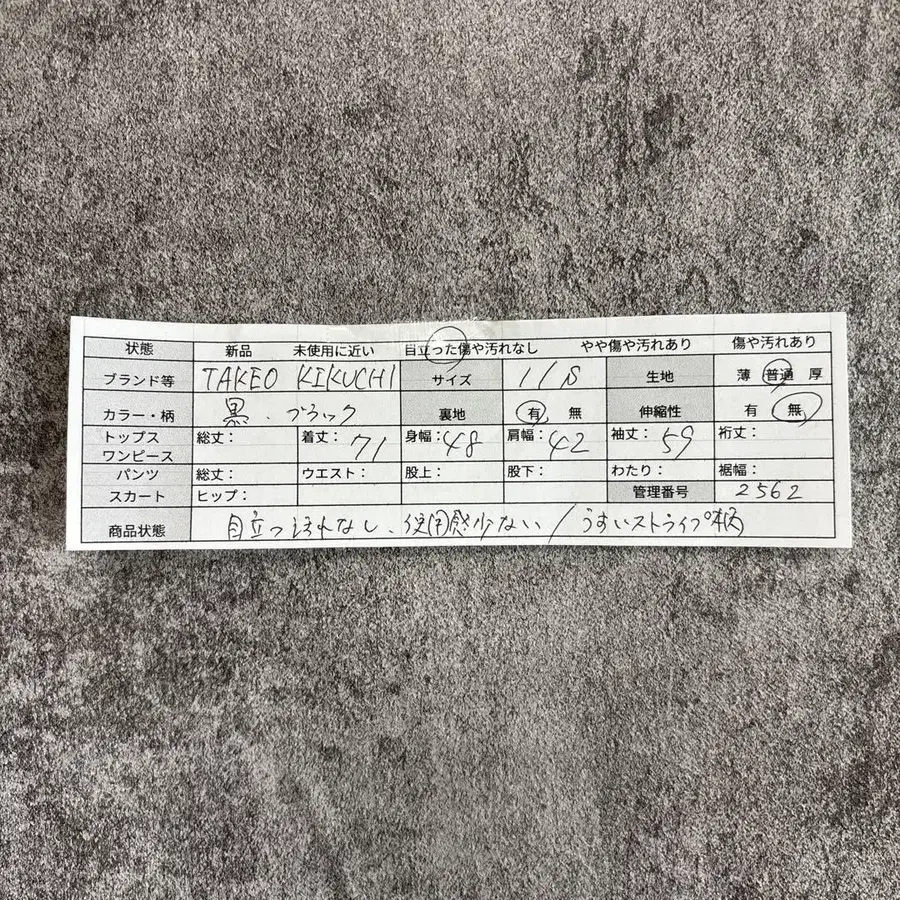 状態 新品 未使用に近い 目立った傷や汚れなし やや傷や汚れあり 傷や汚れあり
ブランド等 TAKEO KIKUCHI サイズ 11S 生地 薄 普通 厚
カラー・柄 黒、ブラック 裏地 有 無 伸縮性 有 無
トップス ワンピース 総丈: 着丈: 71 身幅: 48 肩幅: 42 袖丈: 59 裄丈:
パンツ 総丈: ウエスト: 股上: 股下: わたり: 裾幅:
スカート ヒップ: 管理番号 2562
商品状態 目立つ汚れなし、使用感少ない/うすいストライプ柄